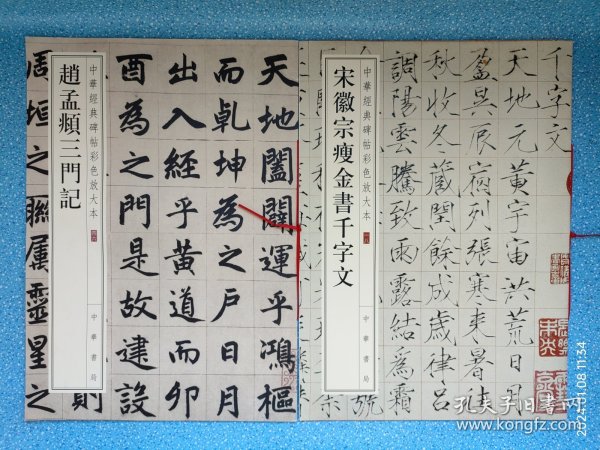 趙孟頫三門記
中華經典碑帖彩色放大本
中華書局
天地闔闢運乎鴻樞
而乾坤為之戶日月
出入經乎黃道而卯
酉為之門是故建設
則
周垣之聯屬靈星之
宋徽宗瘦金書千字文
中華經典碑帖彩色放大本
中華書局
千字文
天地元黃宇宙洪荒日月
盈昃辰宿列張寒來暑往
秋收冬藏閏餘成歲律呂
調陽雲騰致雨露結爲霜
號
2024.01.08 11:34
孔夫子旧书网
www.kongfz.com